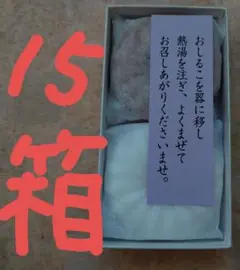 15
箱
おしるこを器に移し
熱湯を注ぎ、よくまぜて
お召しあがりくださいませ。